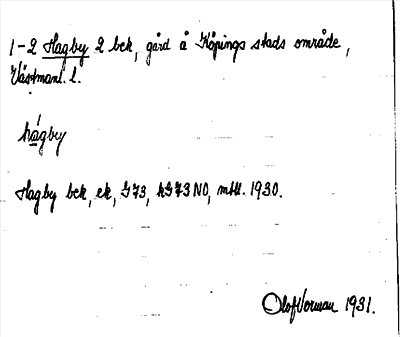 1-2 Hagby 2 bek, gård å Köpings stads område,
Västmanl. l.
hágby
Hagby bek, ek, G73, hG73NO, mtll. 1930.
Olof Vorman 1931.